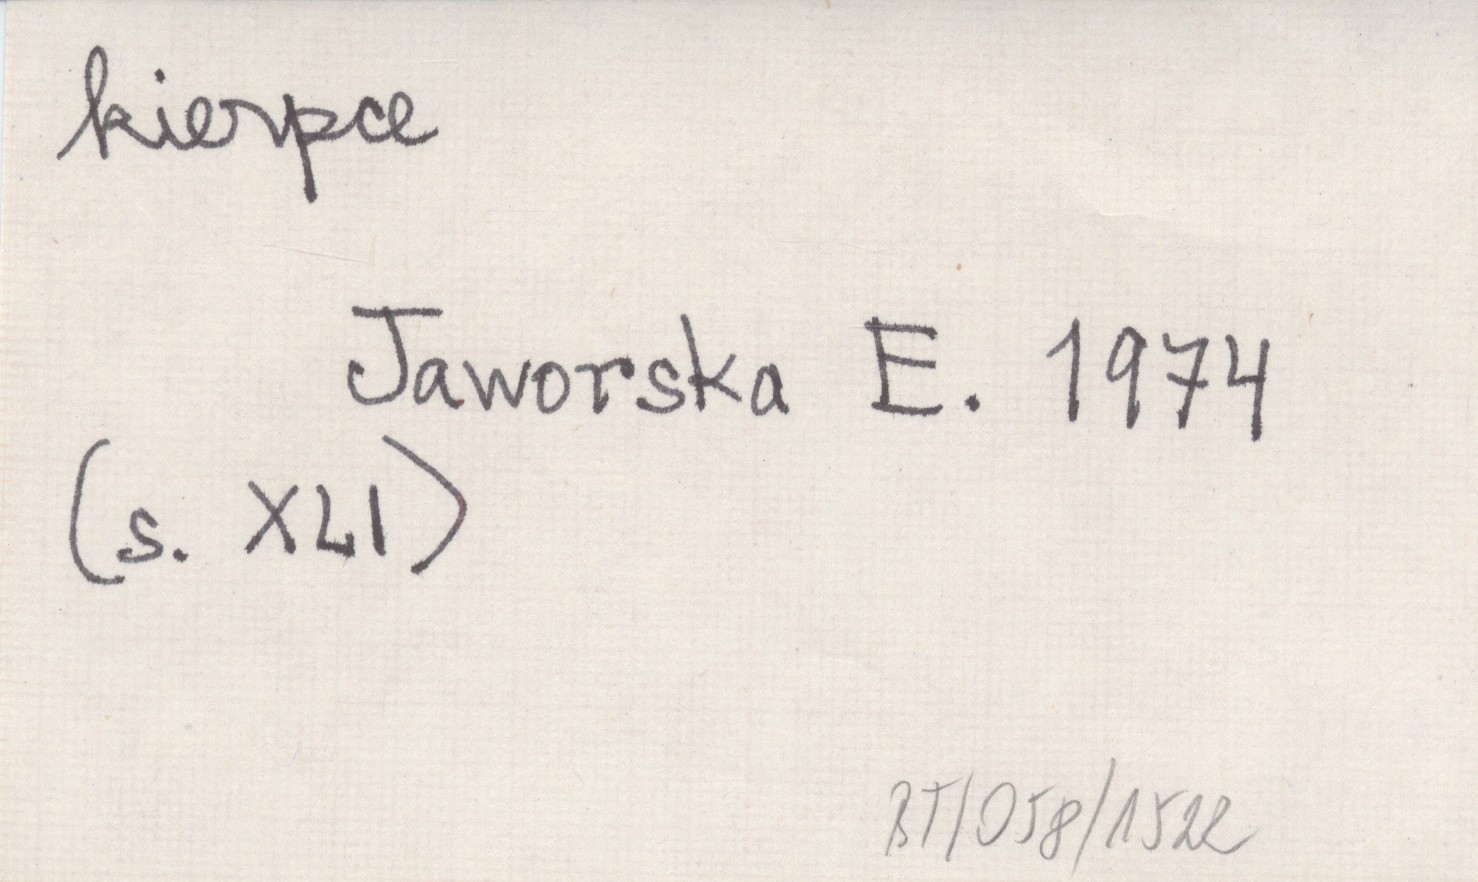 kierpce
Jaworska E. 1974
(s. XLI)
BT/058/1522